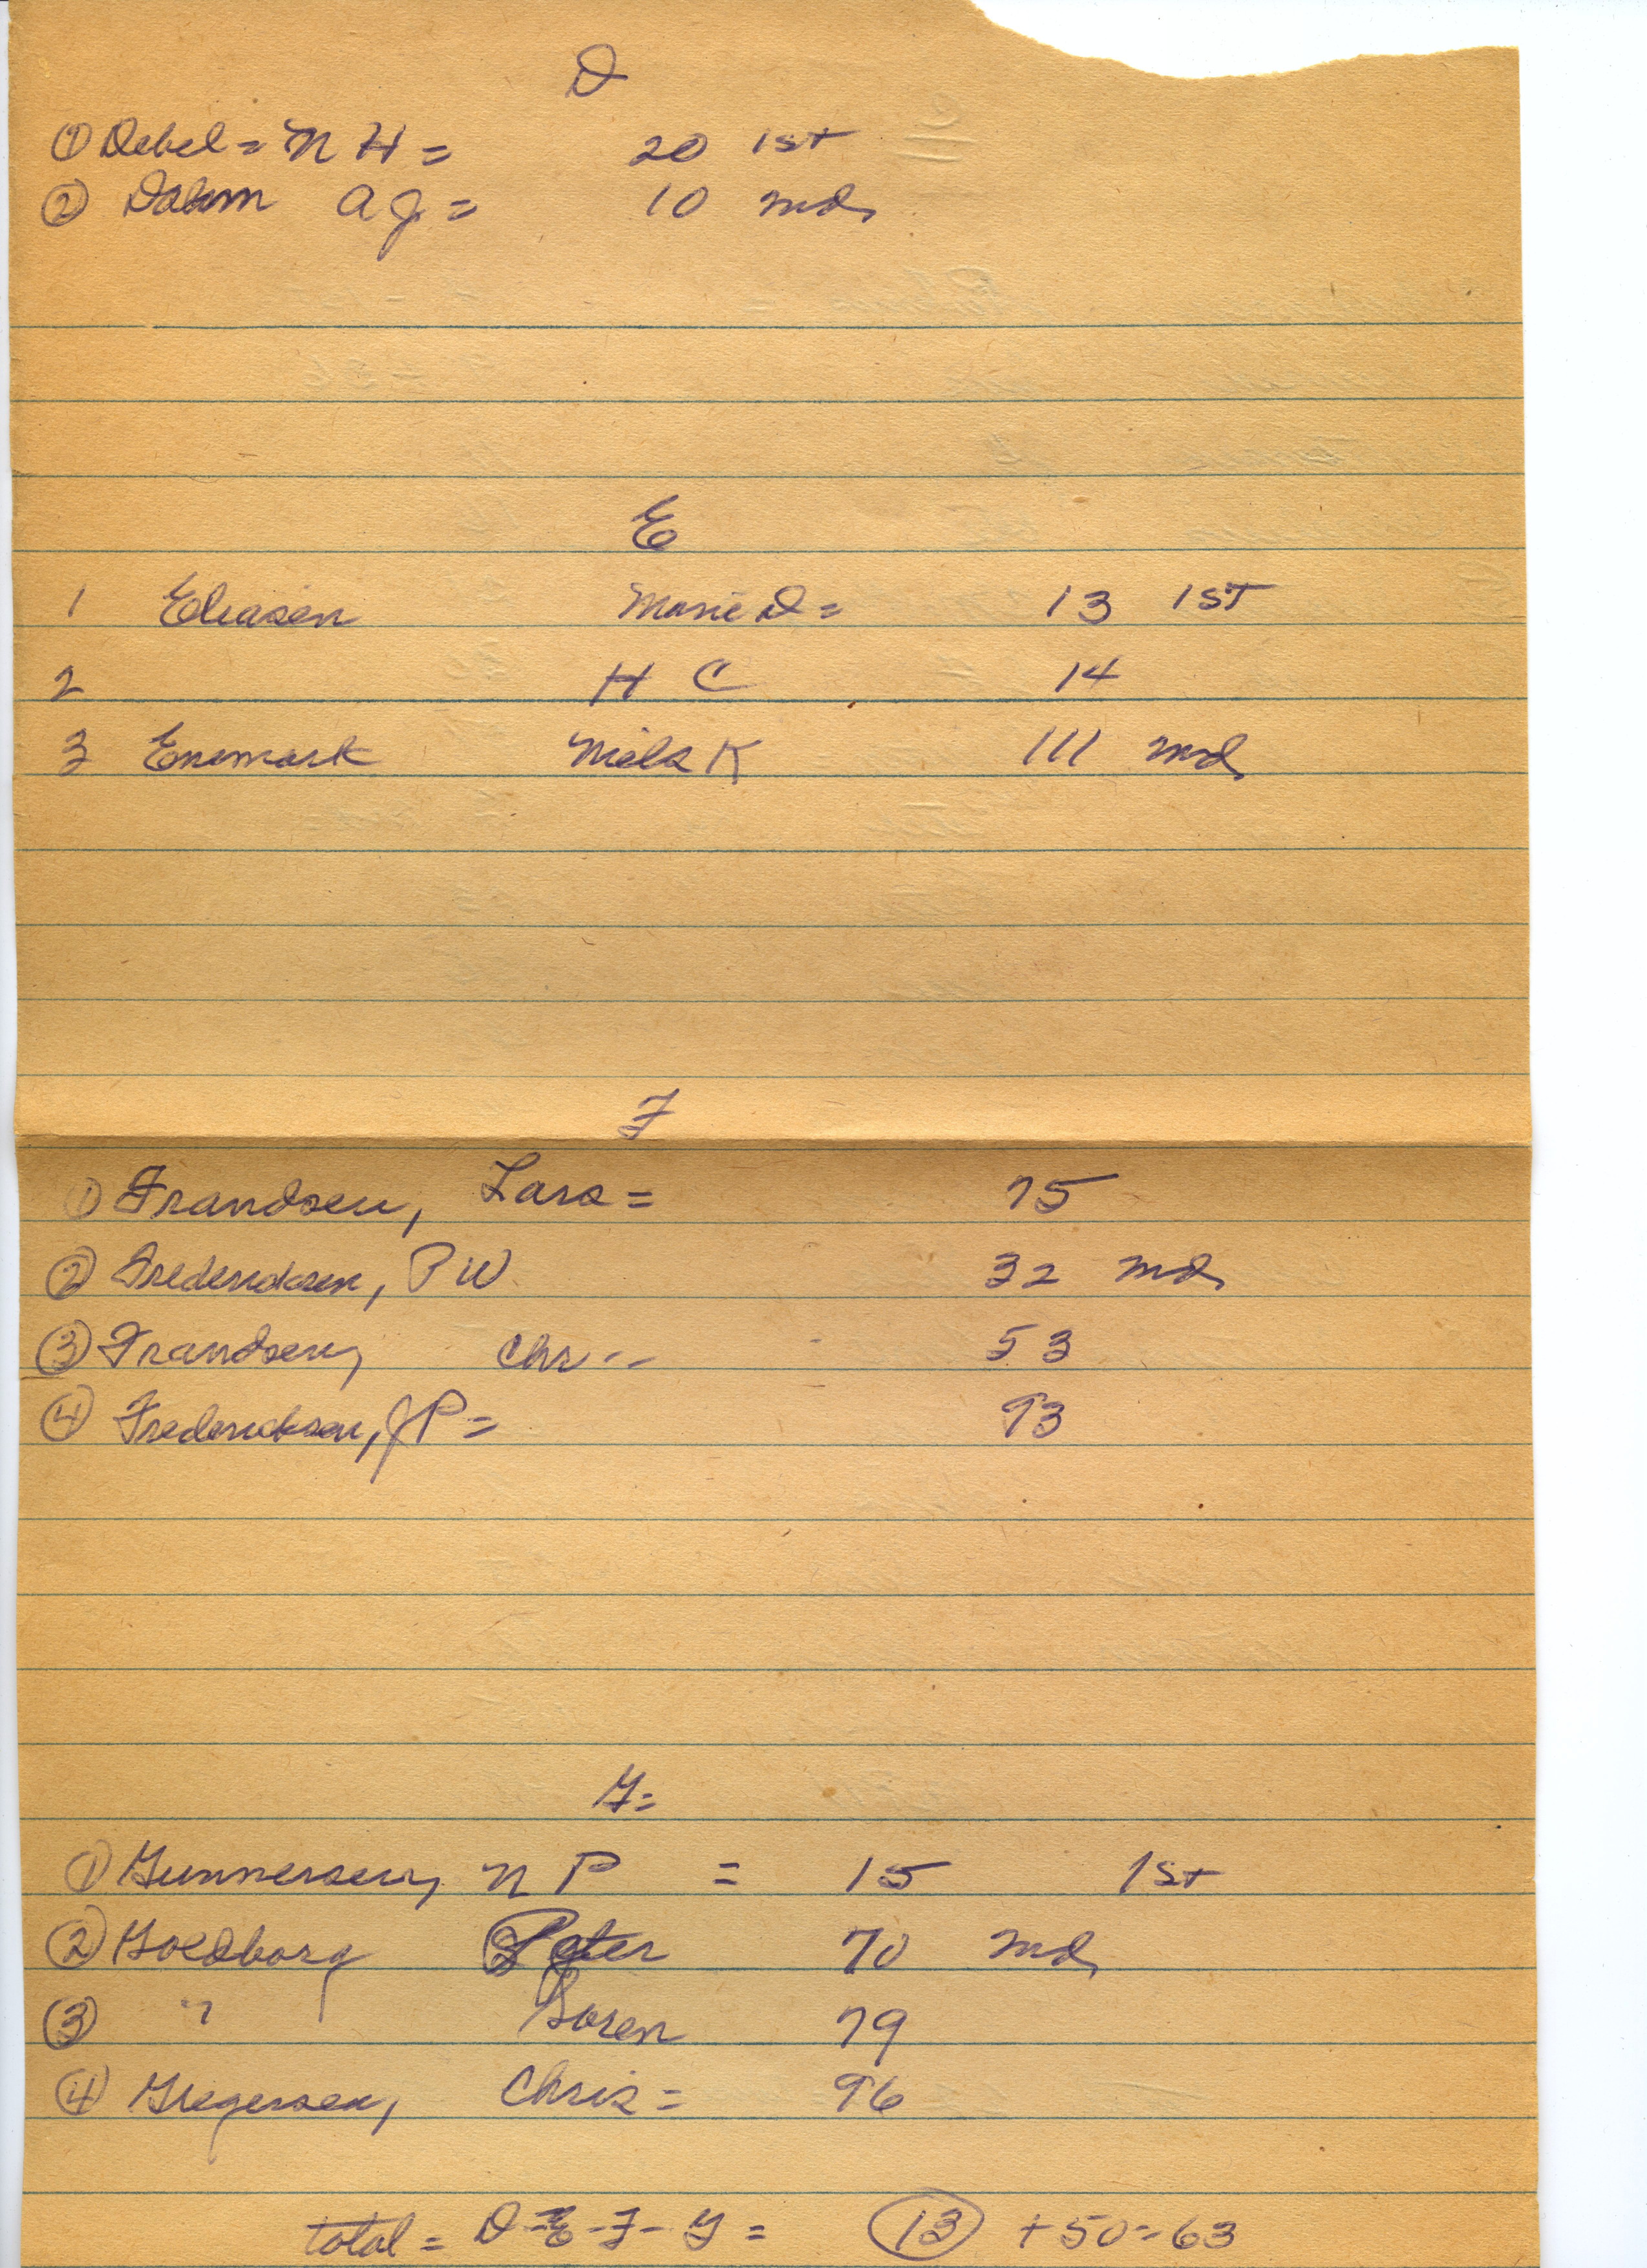 D
① Debel = N H = 20 1st
② Dahm A J = 10 md
E
1 Eliasen Marie D = 13 1ST
2 H C 14
3 Enemark Niels K 111 md
F
① Frandsen, Lars = 75
② Fredericksen, P W 32 md
③ Frandsen, Chr -- 53
④ Fredericksen, J P = 93
G =
① Gunnersen, N P = 15 1st
② Goldborg Peter 70 md
③ " Soren 79
④ Gregersen, Chris = 96
total = D-E-F-G = 13 + 50 = 63